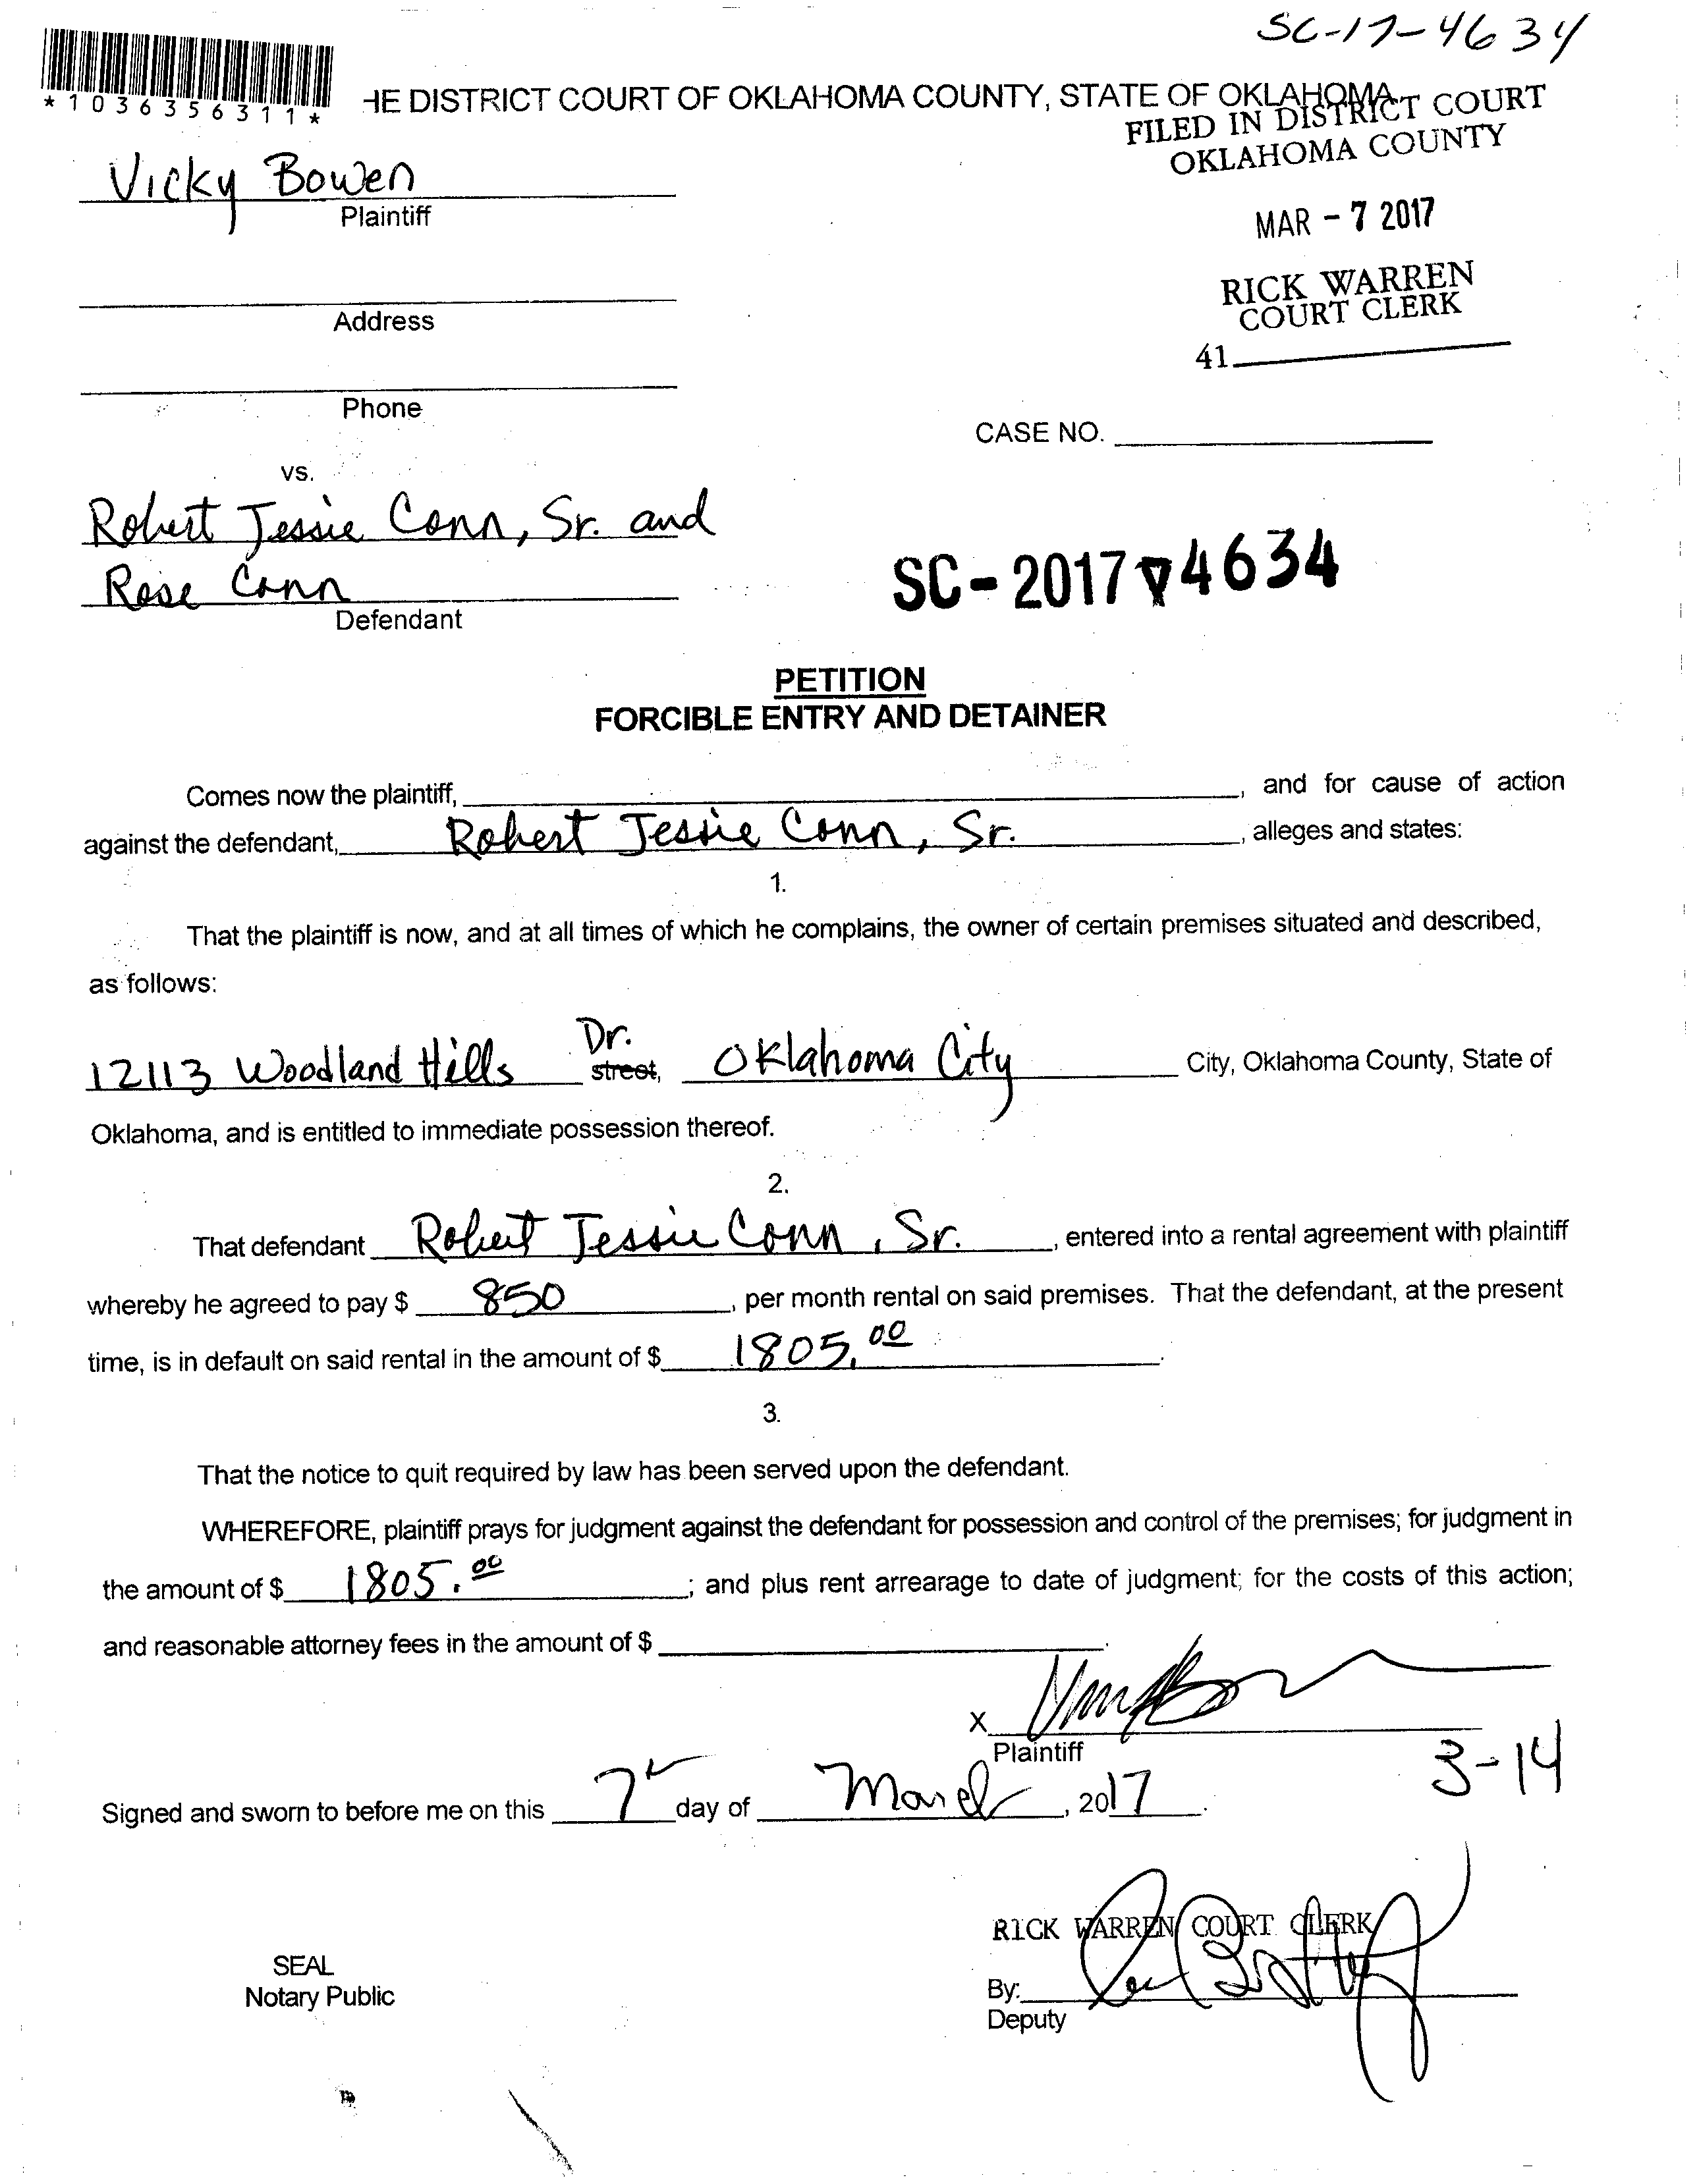 SC-17-4634
*1036356311*
HE DISTRICT COURT OF OKLAHOMA COUNTY, STATE OF OKLAHOMA
FILED IN DISTRICT COURT
OKLAHOMA COUNTY
Vicky Bowen
Plaintiff
MAR - 7 2017
RICK WARREN
COURT CLERK
Address
41
Phone
CASE NO.
vs.
Robert Jessie Conn, Sr. and
Rose Conn
Defendant
SC-2017-4634
PETITION
FORCIBLE ENTRY AND DETAINER
Comes now the plaintiff, , and for cause of action
against the defendant, Robert Jessie Conn, Sr. , alleges and states:
1.
That the plaintiff is now, and at all times of which he complains, the owner of certain premises situated and described,
as follows:
Dr.
12113 Woodland Hills street, Oklahoma City City, Oklahoma County, State of
Oklahoma, and is entitled to immediate possession thereof.
2.
That defendant Robert Jessie Conn, Sr. , entered into a rental agreement with plaintiff
whereby he agreed to pay $ 850 , per month rental on said premises. That the defendant, at the present
time, is in default on said rental in the amount of $ 1805.00 .
3.
That the notice to quit required by law has been served upon the defendant.
WHEREFORE, plaintiff prays for judgment against the defendant for possession and control of the premises; for judgment in
the amount of $ 1805.00 ; and plus rent arrearage to date of judgment; for the costs of this action;
and reasonable attorney fees in the amount of $ .
X
Plaintiff
3-14
Signed and sworn to before me on this 7th day of March , 2017 .
RICK WARREN COURT CLERK
SEAL
Notary Public
By:
Deputy